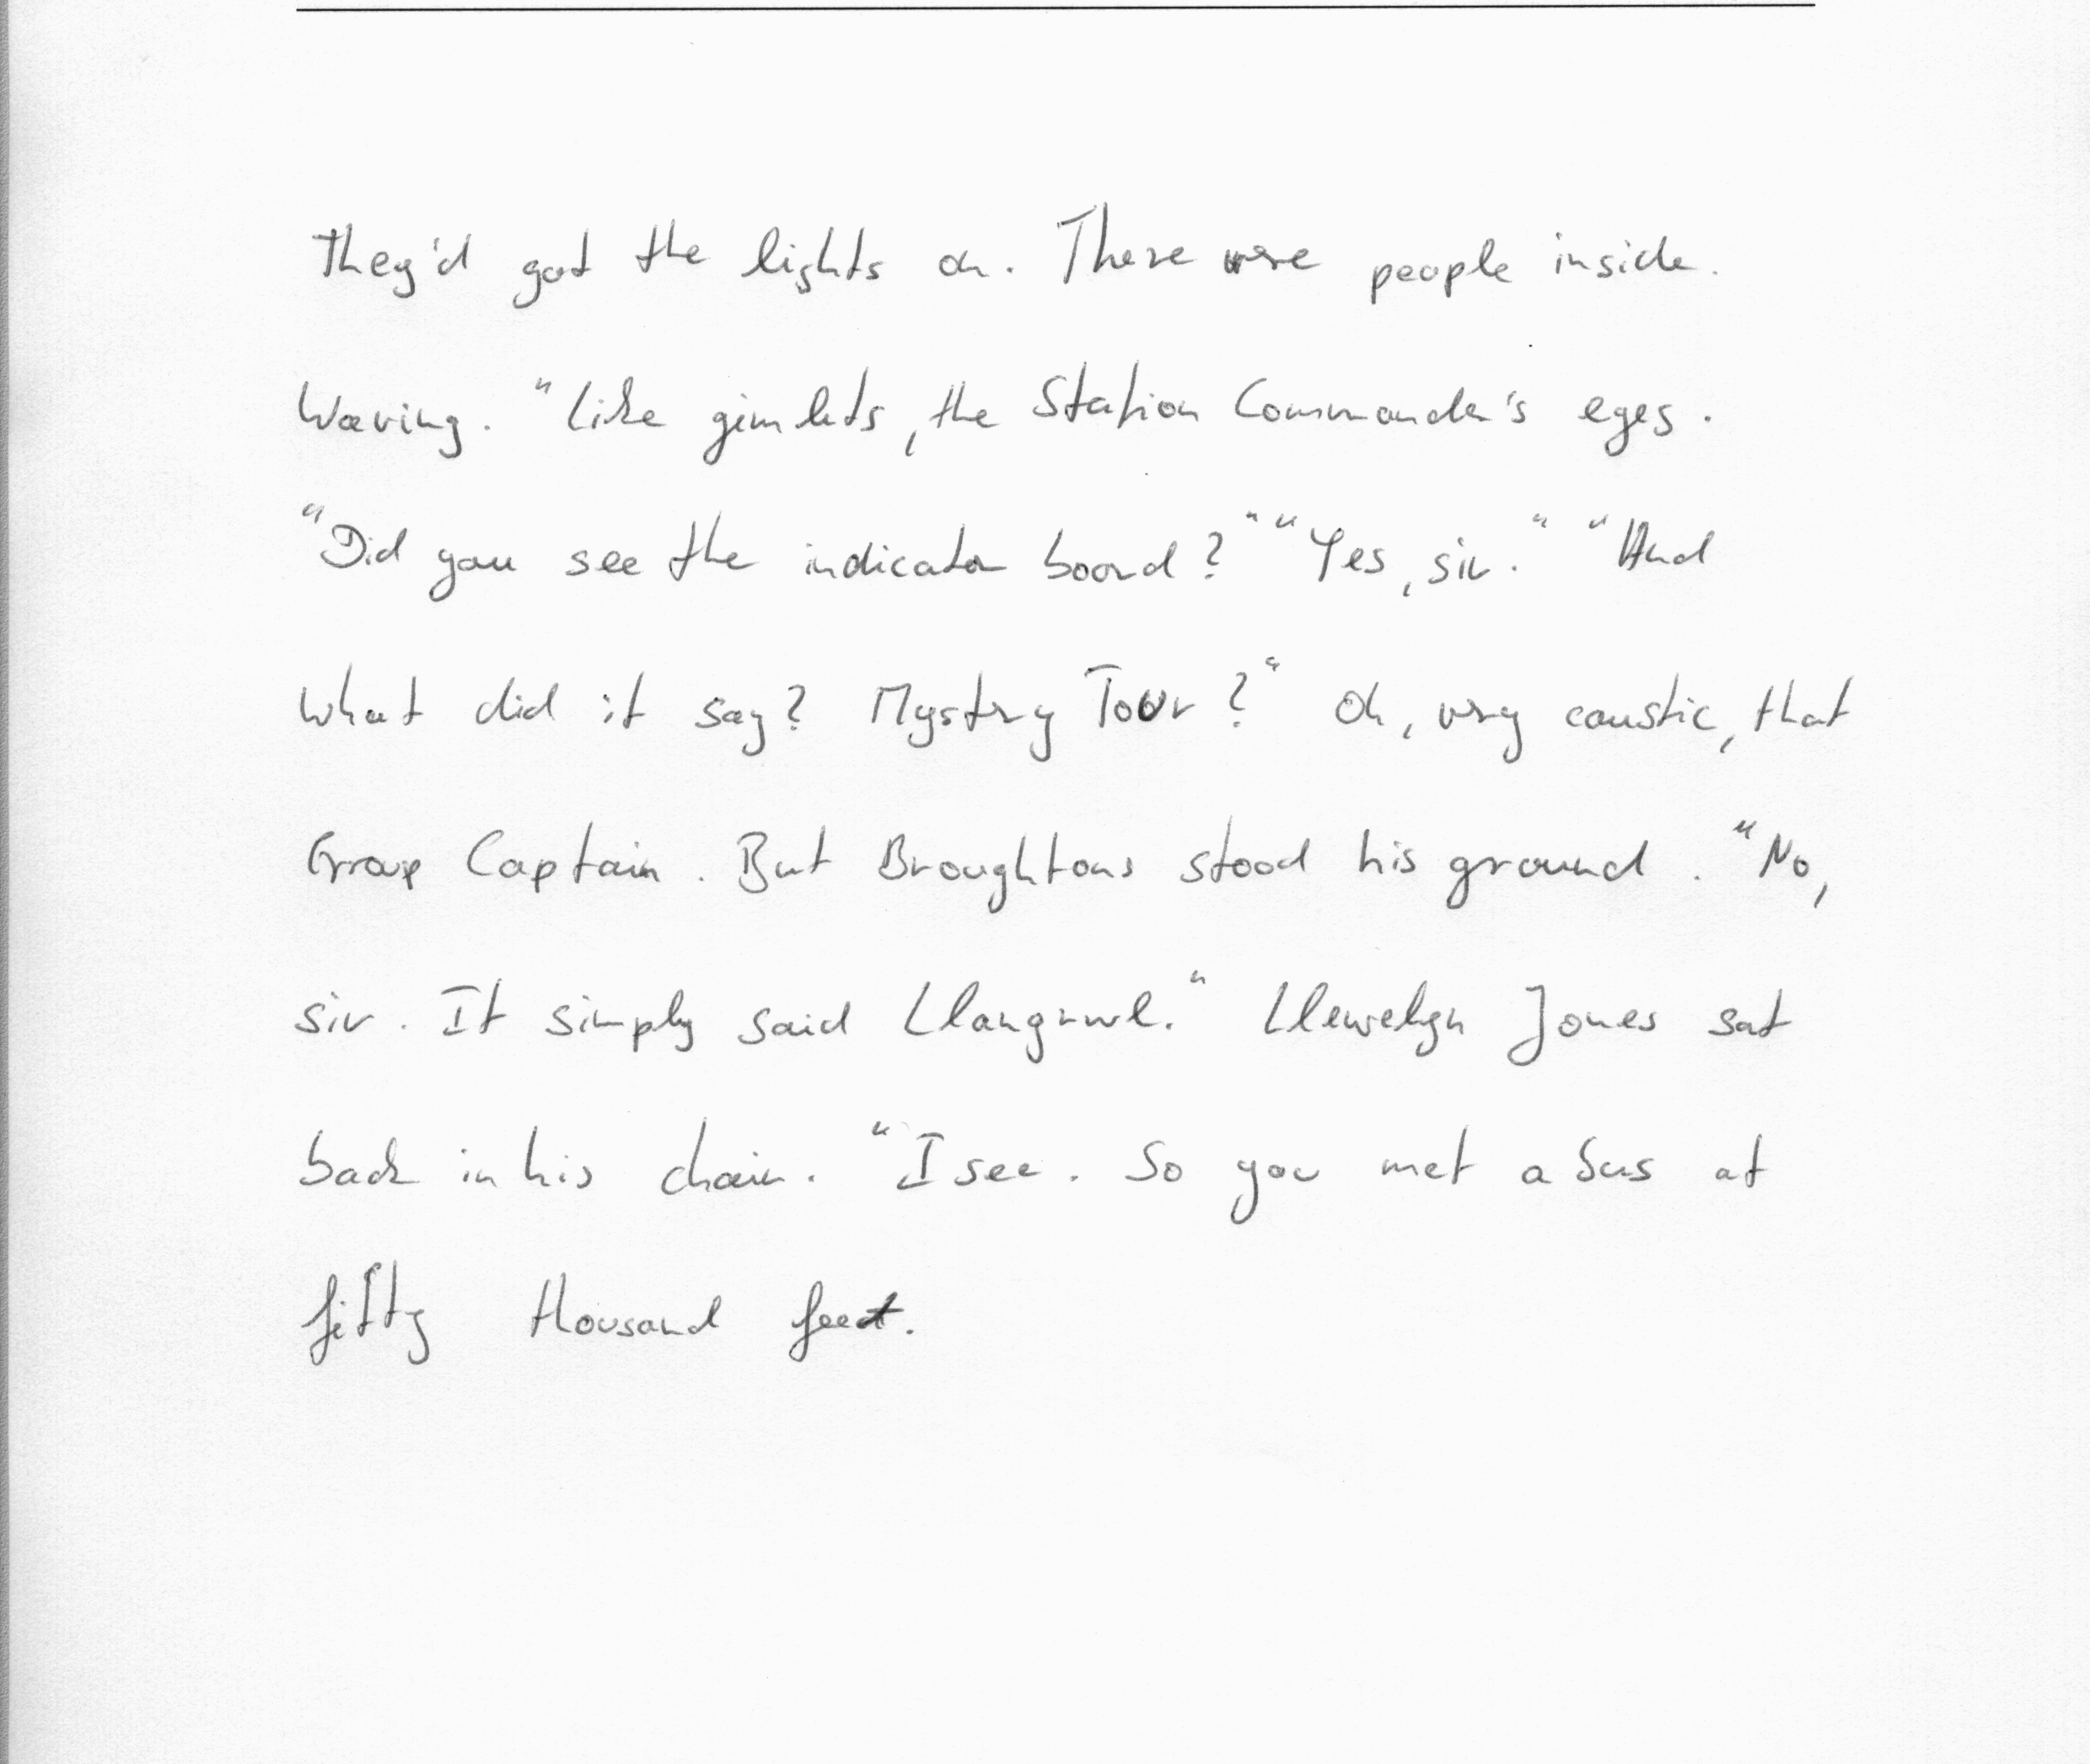 They'd got the lights on. There were people inside.
Waving." Like gimlets, the Station Commander's eyes.
"Did you see the indicator board?" "Yes, sir." "And
what did it say? Mystery Tour?" Oh, very caustic, that
Group Captain. But Broughtons stood his ground. "No,
sir. It simply said Llangrwl." Llewelyn Jones sat
back in his chair. "I see. So you met a bus at
fifty thousand feet.